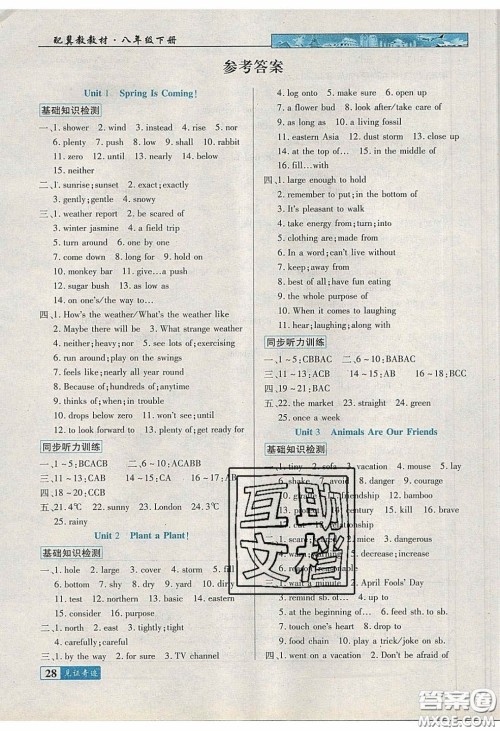 配冀教教材·八年级下册
参考答案
Unit 1 Spring Is Coming!
基础知识检测
一、1. shower 2. wind 3. instead 4. rise 5. surprise
6. plenty 7. push 8. low 9. shall 10. rabbit
11. zero 12. until 13. nearly 14. below
15. neither
二、1. sunrise;sunset 2. exact;exactly
3. gently;gentle 4. snowy
三、1. weather report 2. be scared of
3. winter jasmine 4. a field trip
5. turn around 6. one another
7. come down 8. go for 9. hold on to
10. monkey bar 11. give…a push
12. sugar bush 13. as low as
14. on one's/the way to…
四、1. How's the weather/What's the weather like
2. Maybe there will be 3. What strange weather
4. neither;heavy;nor 5. lots of exercise
6. run around;play on the swings
7. feels like;nearly all year round
8. Because of;hundreds of;anytime
9. thinks of;when;in trouble
10. drops below zero 11. not until
12. to look forward to 13. plenty of;get ready for
同步听力训练
一、1～5:BCACB 二、6～10:ACABB
三、11～13:CAB 14～15:CA 16～17:AB
四、18～20:CCB
五、21. 4℃ 22. sunny 23. London 24. 3℃
25. rainy
Unit 2 Plant a Plant!
基础知识检测
一、1. hole 2. large 3. cover 4. storm 5. fill
6. bottom 7. shy 8. dry 9. yard 10. dirty
11. test 12. northern 13. basic 14. eastern
15. consider 16. purpose
二、1. north 2. east 3. tightly;tight
4. carefully;careful
三、1. be full of 2. over and over 3. TV channel
4. log onto 5. make sure 6. open up
7. a flower bud 8. look after/take care of
9. as long as 10. a living fossil
11. eastern Asia 12. dust storm 13. close up
14. at the top of… 15. in the middle of
16. fill…with
四、1. large enough to hold
2. remember to put;in the bottom of
3. as;How beautiful
4. take energy from;turn;into
5. are;made from
6. In a word;can't live without
7. depending;on
8. best of all;have fun eating
9. the whole purpose of
10. When it comes to
11. hear;laughing;along with
同步听力训练
一、1～5:CBBAC 二、6～10:BABAC
三、11～13:ACB 14～15:AB 16～18:BCC
四、19～21:BAC
五、22. the market 23. straight 24. green
25. once a week
Unit 3 Animals Are Our Friends
基础知识检测
一、1. tiny 2. sofa 3. vacation 4. mouse 5. lay
2. make 3. wonder
二、decrease;increase
三、1. wait a minute 2. April Fools' Day
3. remind sb. of… 4. at times
5. be afraid of 6. feed sth. to sb.
7. touch one's heart 8. drop to
9. food chain 10. play a trick/joke on sb.
四、1. went on a vacation 2. Don't be afraid of
28
见证奇迹
互助
文档
答案圈
MXQE.COM